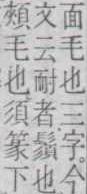 面毛也三字今
文云耐者鬚也
頰毛也須篆下